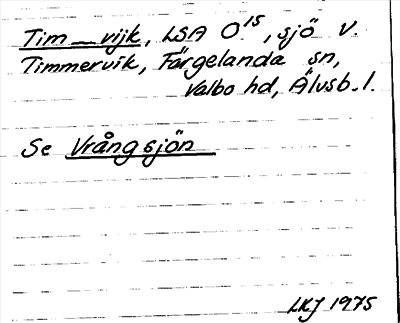 Tim — vijk, LSA O¹⁵, sjö V.
Timmervik, Färgelanda sn,
Valbo hd, Älvsb. l.
Se Vrångsjön
LKJ 1975